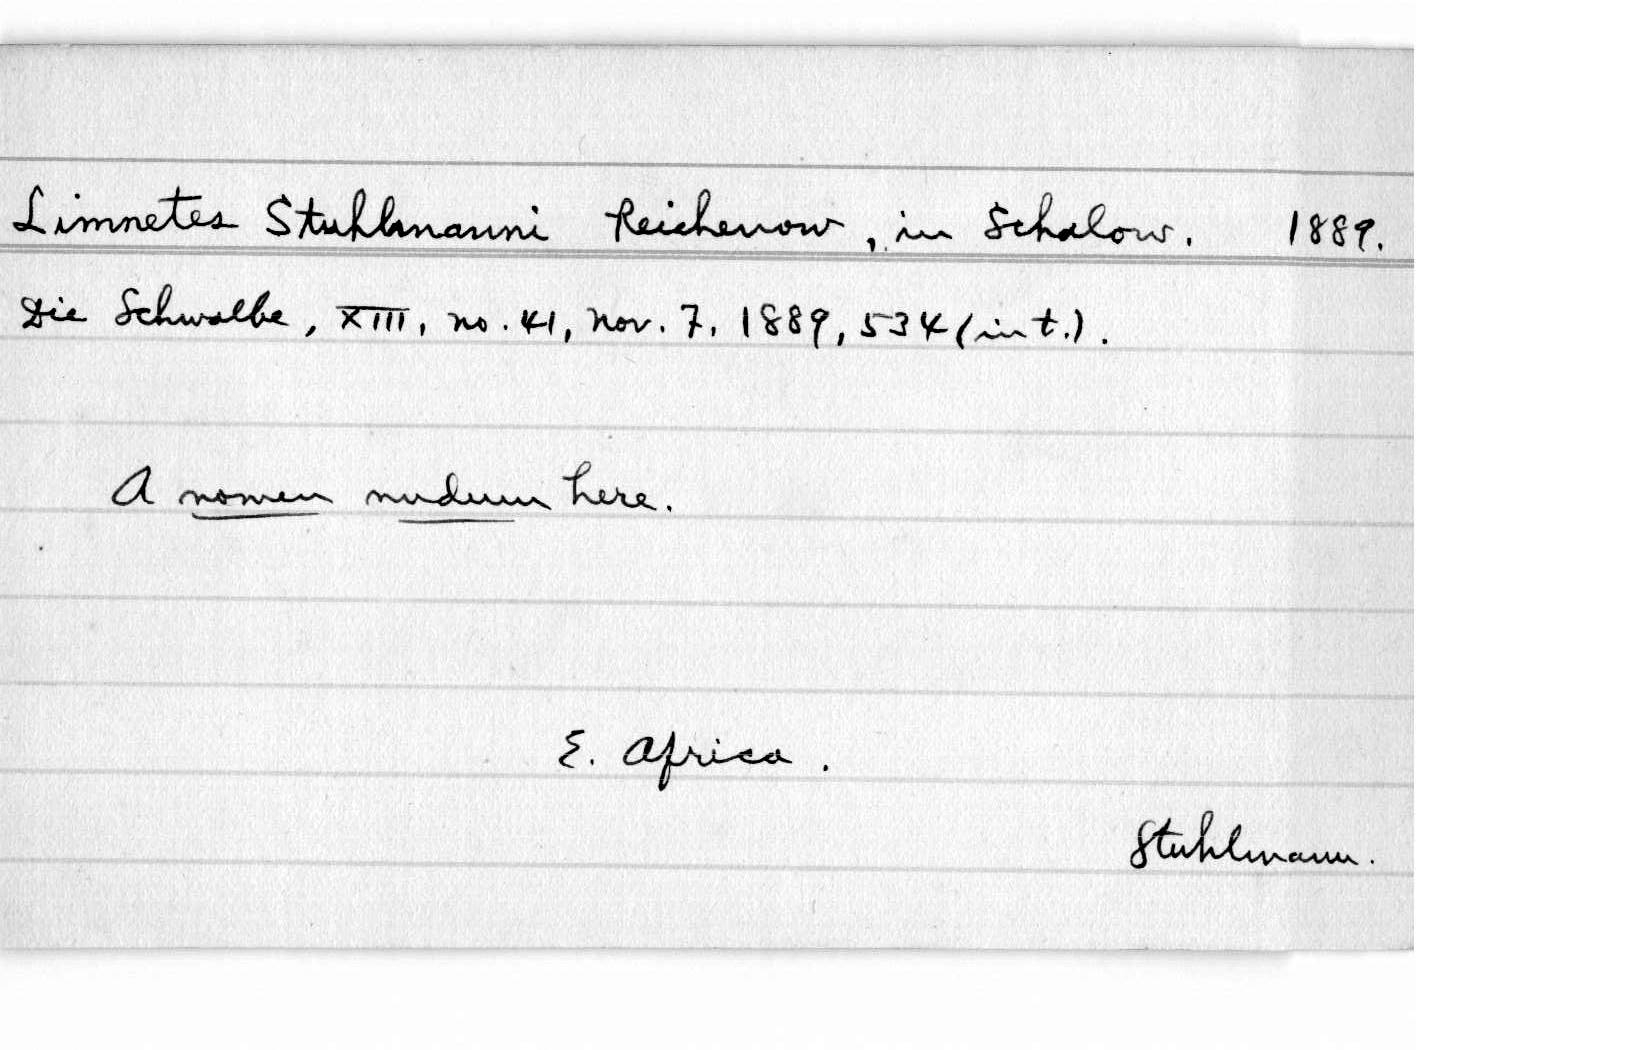 Limnetes Stuhlmanni Reichenow, in Schalow. 1889.
Die Schwalbe, XIII, no. 41, Nov. 7, 1889, 534 (in t.).
A nomen nudum here.
E. Africa.
Stuhlmann.